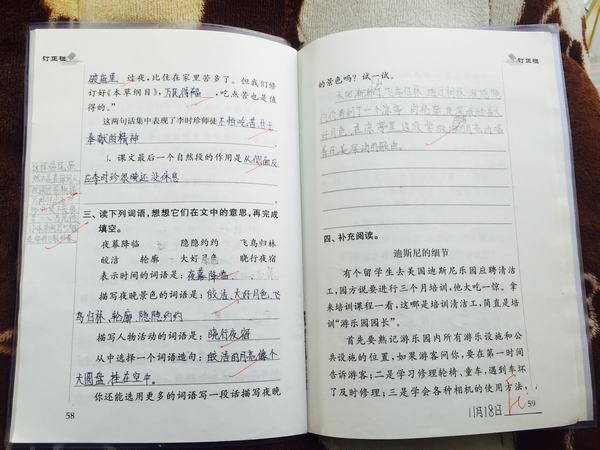 订正栏
破庙里 过夜，比住在家里苦多了。但我们修
订好《本草纲目》，万民得福，吃点苦也是值
得的。”
这两句话集中表现了李时珍师徒不怕吃苦，甘于
奉献的精神
3. 课文最后一个自然段的作用是从侧面反
应李时珍很晚还没休息
三、读下列词语，想想它们在文中的意思，再完成
填空。
夜幕降临 隐隐约约 飞鸟归林
皎洁 轮廓 大好月色 晓行夜宿
表示时间的词语是：夜幕降临
描写夜晚景色的词语是：皎洁、大好月色、飞
鸟归林、轮廓、隐隐约约
描写人物活动的词语是：晓行夜宿
从中选择一个词语造句：皎洁的月亮像个
大圆盘，挂在空中。
你还能选用更多的词语写一段话描写夜晚
58
订正栏
的景色吗？试一试。
四、补充阅读。
迪斯尼的细节
有个留学生去美国迪斯尼乐园应聘清洁
工，园方说要进行三个月培训，他大吃一惊。拿
来培训课程一看，这哪是培训清洁工，简直是培
训“游乐园园长”。
首先要熟记游乐园内所有游乐设施和公
共设施的位置，如果游客问你，要在第一时间
告诉游客；二是学习修理轮椅、童车，遇到车坏
了及时修理；三是学会各种相机的使用方法，
11月18日
59